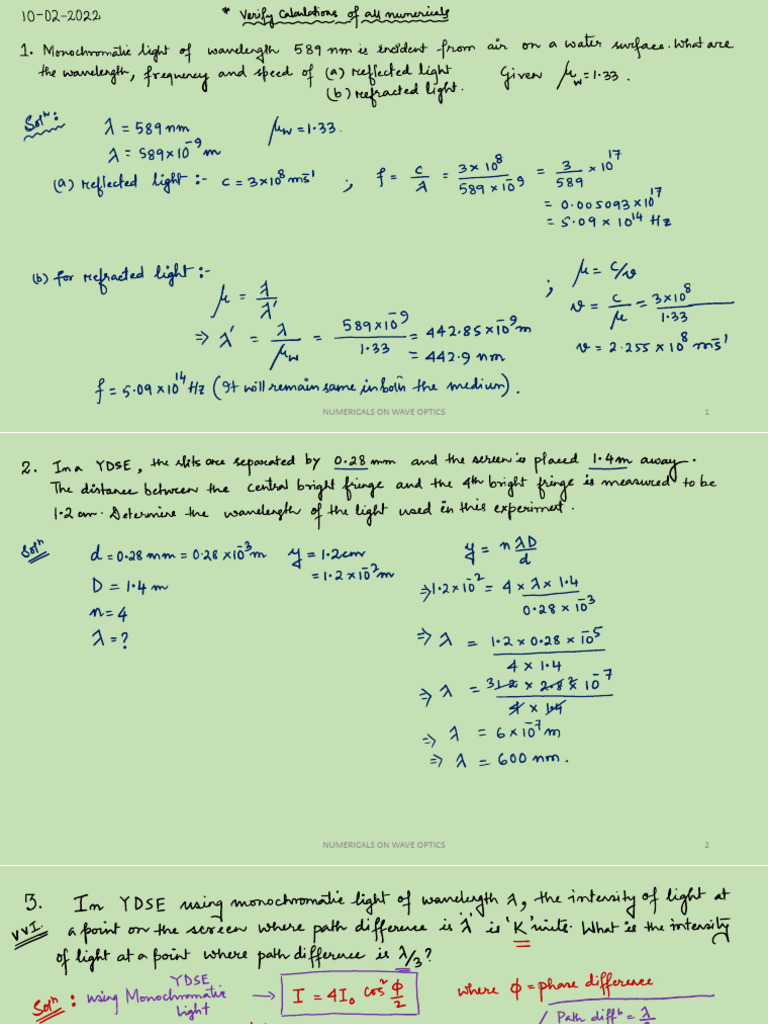 10-02-2022
* Verify Calculations of all numericals
1. Monochromatic light of wavelength 589 nm is incident from air on a water surface. What are
the wavelength, frequency and speed of (a) reflected light
(b) refracted light. Given μw = 1.33.
Solⁿ:
λ = 589 nm μw = 1.33.
λ = 589×10⁻⁹ m
(a) reflected light :- c = 3×10⁸ ms⁻¹ ; f = c/λ = 3×10⁸/589×10⁻⁹ = 3/589 × 10¹⁷
= 0.005093×10¹⁷
= 5.09 × 10¹⁴ Hz
(b) for refracted light :-
μ = λ/λ'
⇒ λ' = λ/μw = 589×10⁻⁹/1.33 = 442.85×10⁻⁹ m
= 442.9 nm
; μ = c/v
v = c/μ = 3×10⁸/1.33
v = 2.255×10⁸ ms⁻¹
f = 5.09×10¹⁴ Hz (It will remain same in both the medium).
NUMERICALS ON WAVE OPTICS 1
2. In a YDSE, the slits are separated by 0.28 mm and the screen is placed 1.4 m away.
The distance between the central bright fringe and the 4th bright fringe is measured to be
1.2 cm. Determine the wavelength of the light used in this experiment.
Solⁿ
d = 0.28 mm = 0.28×10⁻³ m y = 1.2 cm
= 1.2×10⁻² m
D = 1.4 m
n = 4
λ = ?
y = n λD/d
⇒ 1.2×10⁻² = 4 × λ × 1.4/0.28 × 10⁻³
⇒ λ = 1.2 × 0.28 × 10⁻⁵/4 × 1.4
⇒ λ = 3 1.2 × 2.8 2 × 10⁻⁷/4 × 1.4
⇒ λ = 6×10⁻⁷ m
⇒ λ = 600 nm.
NUMERICALS ON WAVE OPTICS 2
3. In YDSE using monochromatic light of wavelength λ, the intensity of light at
VVI. a point on the screen where path difference is 'λ' is 'K' units. What is the intensity
of light at a point where path difference is λ/3?
Solⁿ: using Monochromatic YDSE Light → I = 4I₀ cos² φ/2 where φ = phase difference
Path diffᵇ = λ